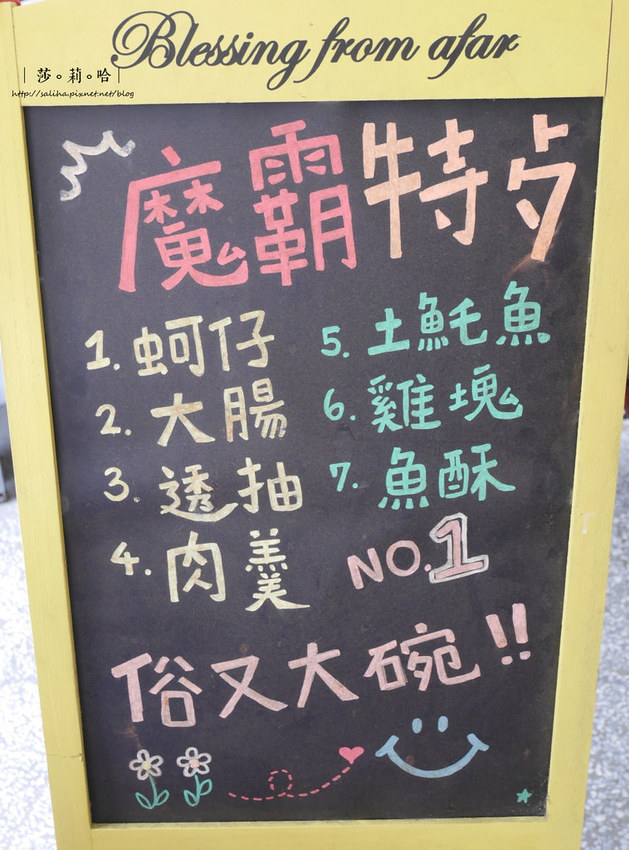 Blessing from afar
｜莎。莉。哈｜
http://saliha.pixnet.net/blog
魔霸特夕
1. 蚵仔
2. 大腸
3. 透抽
4. 肉羹
5. 土魠魚
6. 雞塊
7. 魚酥
NO.1
俗又大碗!!